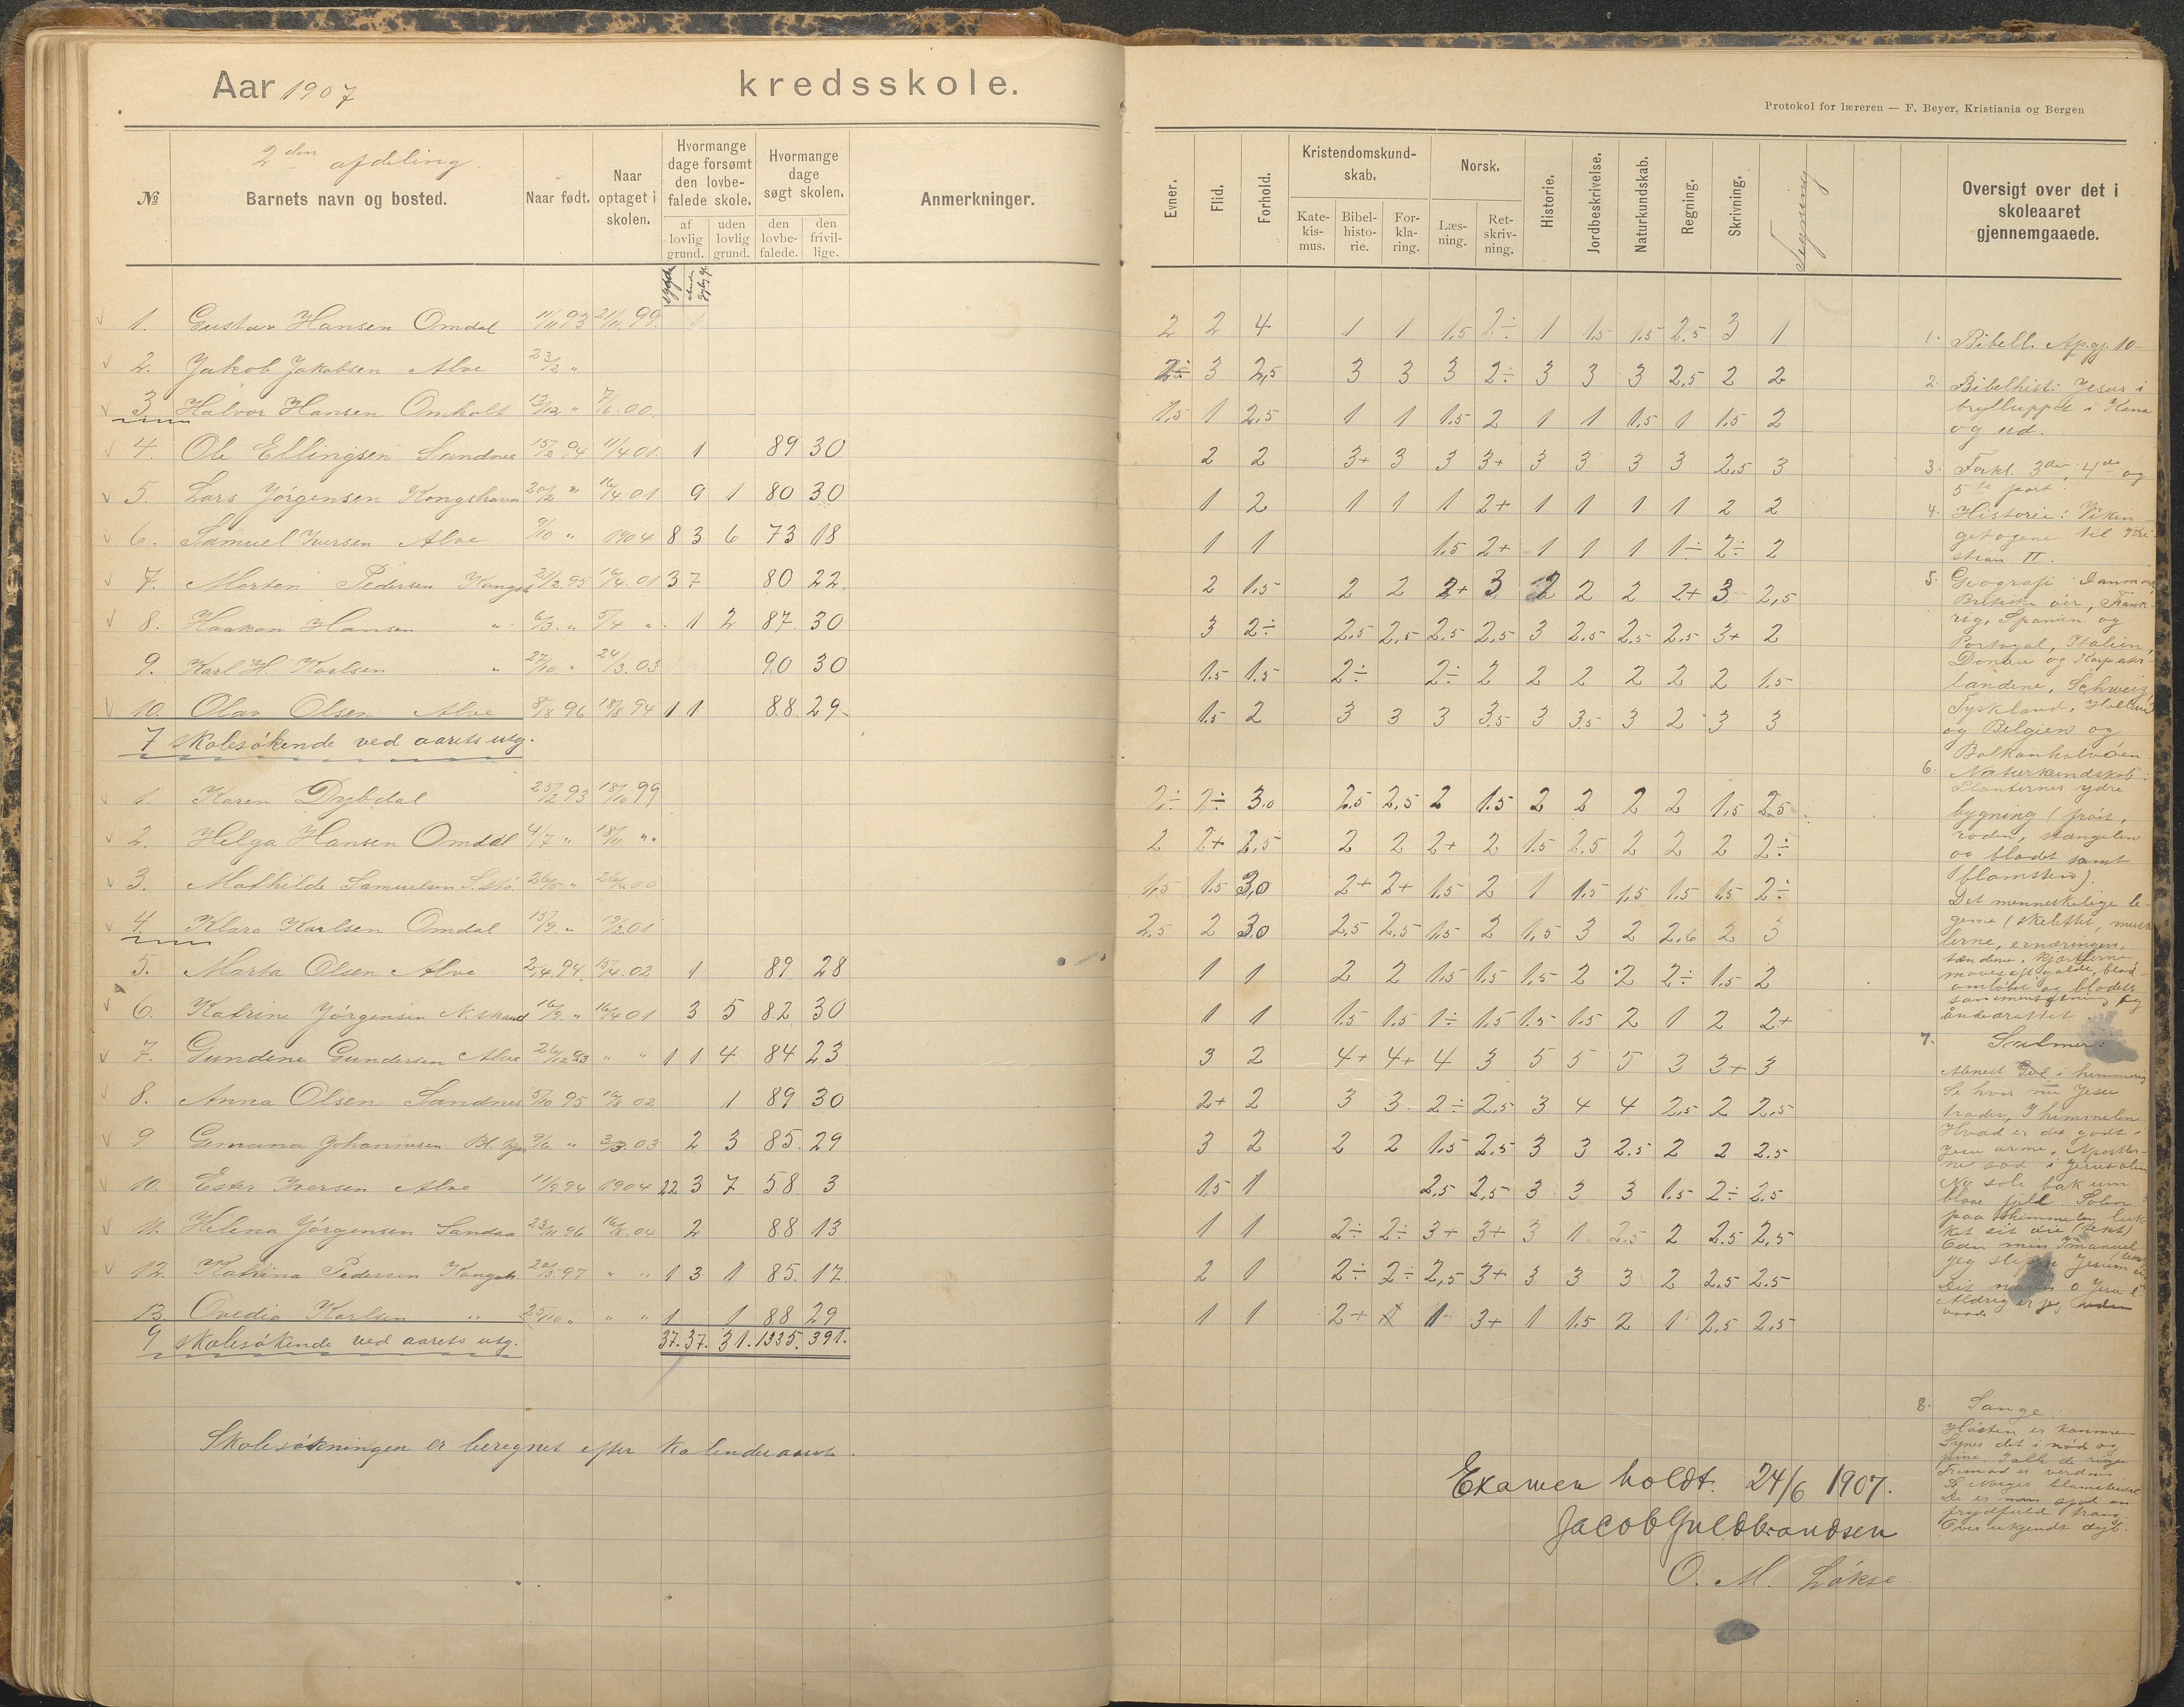 Aar 1907 kredsskole.
Protokol for læreren — F. Beyer, Kristiania og Bergen
2den afdeling.
№ Barnets navn og bosted. Naar født. Naar optaget i skolen. Hvormange dage forsømt den lovbefalede skole. af lovlig grund. uden lovlig grund. Hvormange dage søgt skolen. den lovbefalede. den frivillige. Anmerkninger.
Evner. Flid. Forhold. Kristendomskundskab. Katekismus. Bibelhistorie. Forklaring. Norsk. Læsning. Retskrivning. Historie. Jordbeskrivelse. Naturkundskab. Regning. Skrivning. Tegning Oversigt over det i skoleaaret gjennemgaaede.
1. Gustav Hansen Omdal 11/11 93 21/11 99. 2 2 4 1 1 1,5 2÷ 1 1,5 1,5 2,5 3 1
2. Jakob Jakobsen Alve 23/12 " 3 2,5 3 3 3 2÷ 3 3 3 2,5 2 2
3. Halvor Hansen Omholt 13/12 " 7/6.00. 1,5 1 2,5 1 1 1,5 2 1 1 1,5 1 1,5 2
4. Ole Ellingsen Sandnes 15/2 94 11/4 01. 1 89 30 2 2 3+ 3 3 3+ 3 3 3 3 2,5 3
5. Lars Jörgensen Kongshavn 20/2 " 16/4 01 9 1 80 30 1 2 1 1 1 2+ 1 1 1 1 2 2
6. Samuel Iversen Alve 9/10 " 1904 8 3 6 73 18 1 1 1,5 2+ 1 1 1 1÷ 2÷ 2
7. Morten Pedersen Kongsh 21/2 95 16/4. 01 3 7 80 22. 2 1,5 2 2 2+ 3 2 2 2 2+ 3 2,5
8. Haakon Hansen " 6/3. " 5/4 " 1 2 87. 30 3 2÷ 2,5 2,5 2,5 2,5 3 2,5 2,5 2,5 3+ 2
9. Karl H. Karlsen " 27/10. " 24/3.03 90 30 1,5 1,5 2÷ 2÷ 2 2 2 2 2 2 1,5
10. Olav Olsen Alve 8/8 96 18/8 94 1 1 88 29. 1,5 2 3 3 3 3,5 3 3,5 3 2 3 3
7 skolesökende ved aarets utg.
1. Karen Dybdal 25/2 93 18/10 99 2÷ 2÷ 3,0 2,5 2,5 2 1,5 2 2 2 2 1,5 2,5
2. Helga Hansen Omdal 4/7 " 18/11 "" 2 2+ 2,5 2 2 2+ 2 1,5 2,5 2 2 2 2÷
3. Mathilde Samuelsen 26/5 " 1,5 1,5 3,0 2+ 2+ 1,5 2 1 1,5 1,5 1,5 1,5 2÷
4. Klara Karlsen Omdal 15/9 " 19/2 01 2,5 2 3,0 2,5 2,5 1,5 2 1,5 3 2 2,6 2 3
5. Marta Olsen Alve 2/4.94 15/4.02 1 89 28 1 1 2 2 1,5 1,5 1,5 2 2 2÷ 1,5 2
6. Katrine Jörgensen 16/9. " 16/4 01 3 5 82 30 1 1 1,5 1,5 1÷ 1,5 1,5 1,5 2 1 2 2+
7. Gundene Gundersen Alve 26/12 93 " " 1 1 4 84 23 3 2 4+ 4+ 4 3 5 5 5 3 3+ 3
8. Anna Olsen Sandnes 5/10 95 19/8 02 1 89 30 2+ 2 3 3 2÷ 2,5 3 4 4 2,5 2 2,5
9 Johannesen 9/6. " 3/3.03 2 3 85. 29 3 2 2 2 1,5 2,5 3 3 2,5 2 2 2.5
10. Ester Iversen Alve 11/9 94 1904 22 3 7 58 3 1,5 1 2,5 2,5 3 3 3 1,5 2÷ 2,5
11. Helena Jörgensen Sandaa 23/11 96 16/8.04 2 88 13 1 1 2÷ 2÷ 3+ 3+ 3 1 2,5 2 2.5 2,5
12. Katrina Pedersen Kongsh. 20/5.97 " " 1 3 1 85. 17. 2 1 2÷ 2÷ 2,5 3+ 3 3 3 2 2.5 2.5
13. Ovedia Karlsen " 25/10 " " " 1 1 88 29 1 1 2+ 1 3+ 1 1,5 2 1 2,5 2,5
9 skolesökende ved aarets utg. 37. 37. 31. 1335. 391.
Skolesökningen er beregnet efter kalenderaaret.
1. Bibell. Ap.gj. 10
2. Bibelhist: Jesus i
brylluppet i Kana
og ud.
3. Forkl. 3die, 4de og
5te part.
4. Historie: Vikin
getogene til Kri
stian II.
5. Geografi: Danmark
Britiske öer, Frank
rig, Spanien og
Portugal, Italien,
Donau og Karpater
landene, Schweiz,
Tyskland, Holland
og Belgien og
Balkanhalvöen.
6. Naturkundskab:
Planternes ydre
bygning (fröit,
roden, stængelen
og bladet samt
blomsten).
Det menneskelige le-
geme (skelettet, musk
lerne, ernæringen,
tændene, kjærtlerne,
mavesaft galde, blod-
omlöbet og blodets
sammensætning og
åndedrættet.
7. Salmer:
Se hvor nu Jesu
træder, I himmelen
Hvad er det godt i
Jesu arme, Apostler-
ne sad i Jerusalem
No soli bak um
blaae fjell. Solen
paa himmelen luk-
ket sit öie (tekst)
Eden min Immanuel
Jeg slipper Jesum ei
Dit navn o Jesu
Aldrig er jeg uden
vaade
8. Sange.
Hösten er kommen
Synes det i nöd og
pine
Trimod er verden
Se Norges blomsterdal
frydfuld trang
Over ukjendt dyb.
Examen holdt. 24/6 1907.
Jacob Guldbrandsen
O. M. Lökse